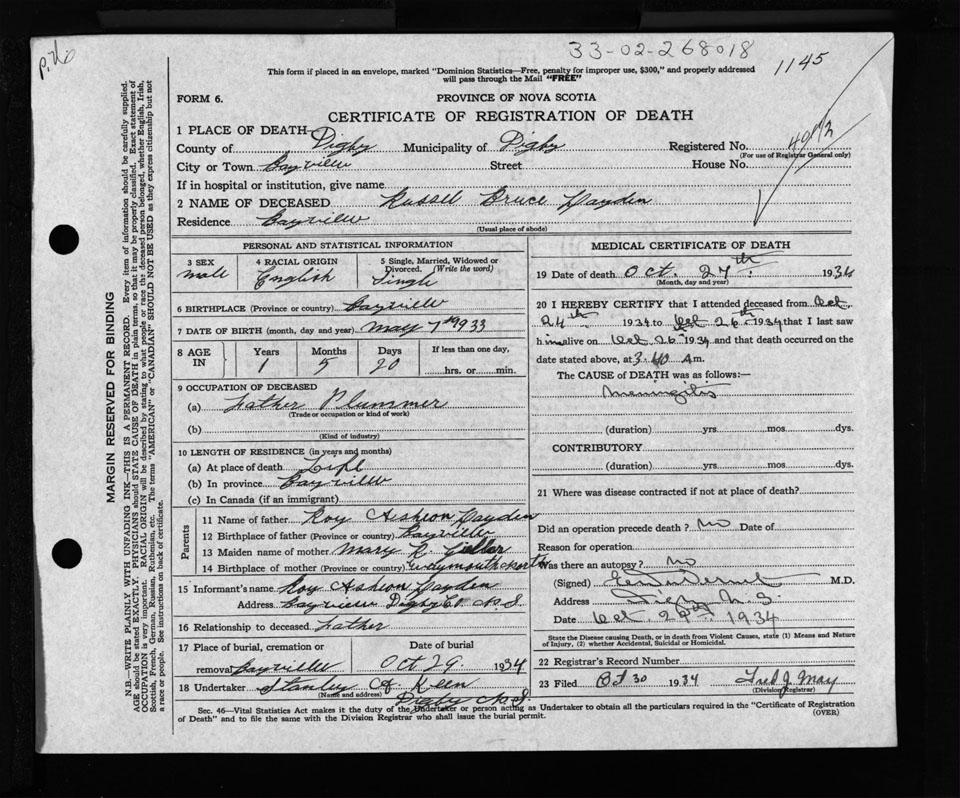 33-02-268018
This form if placed in an envelope, marked "Dominion Statistics—Free, penalty for improper use, $300," and properly addressed
will pass through the Mail "FREE"
1145
FORM 6.
PROVINCE OF NOVA SCOTIA
CERTIFICATE OF REGISTRATION OF DEATH
1 PLACE OF DEATH
County of Digby Municipality of Digby Registered No.
(For use of Registrar General only)
City or Town Bayview Street House No.
If in hospital or institution, give name
2 NAME OF DECEASED Russel Bruce Hayden
Residence Bayview
(Usual place of abode)
PERSONAL AND STATISTICAL INFORMATION
3 SEX male
4 RACIAL ORIGIN English
5 Single, Married, Widowed or Divorced. (Write the word) Single
6 BIRTHPLACE (Province or country) Bayview
7 DATE OF BIRTH (month, day and year) May 7th 1933
8 AGE IN Years 1 Months 5 Days 20 If less than one day, hrs. or min.
9 OCCUPATION OF DECEASED
(a) Father Plummer
(Trade or occupation or kind of work)
(b)
(Kind of industry)
10 LENGTH OF RESIDENCE (in years and months)
(a) At place of death Life
(b) In province Bayview
(c) In Canada (if an immigrant)
Parents
11 Name of father Roy Hayden
12 Birthplace of father (Province or country) Bayview
13 Maiden name of mother Mary R.
14 Birthplace of mother (Province or country) Weymouth North
15 Informant's name Roy Hayden
Address Bayview Digby Co. N.S.
16 Relationship to deceased Father
17 Place of burial, cremation or removal Bayview
Date of burial Oct 29 1934
18 Undertaker Stanley A. Keen
(Name and address) Digby N.S.
MEDICAL CERTIFICATE OF DEATH
19 Date of death Oct. 27th 1934
(Month, day and year)
20 I HEREBY CERTIFY that I attended deceased from Oct.
24th 1934 to Oct 26th 1934 that I last saw
him alive on Oct. 26th 1934 and that death occurred on the
date stated above, at 3.40 A m.
The CAUSE of DEATH was as follows:—
Meningitis
(duration) yrs. mos. dys.
CONTRIBUTORY
(duration) yrs. mos. dys.
21 Where was disease contracted if not at place of death?
Did an operation precede death? no Date of
Reason for operation
Was there an autopsy? no
(Signed) M.D.
Address Digby N.S.
Date Oct. 29th 1934
State the Disease causing Death, or in death from Violent Causes, state (1) Means and Nature
of Injury, (2) whether Accidental, Suicidal or Homicidal.
22 Registrar's Record Number
23 Filed Oct 30 1934 Fred J. May
(Division Registrar)
Sec. 46—Vital Statistics Act makes it the duty of the Undertaker or person acting as Undertaker to obtain all the particulars required in the "Certificate of Registration
of Death" and to file the same with the Division Registrar who shall issue the burial permit.
(OVER)
MARGIN RESERVED FOR BINDING
N.B.—WRITE PLAINLY WITH UNFADING INK—THIS IS A PERMANENT RECORD. Every item of information should be carefully supplied.
AGE should be stated EXACTLY. PHYSICIANS should STATE CAUSE OF DEATH in plain terms, so that it may be properly classified. Exact statement of
OCCUPATION is very important. RACIAL ORIGIN will be described by stating to what people or race the deceased person belonged, whether English, Irish,
Scottish, French, German, Russian, Ruthenian, etc. The terms "AMERICAN" or "CANADIAN" SHOULD NOT BE USED as they express citizenship but not
a race or people. See instructions on back of certificate.